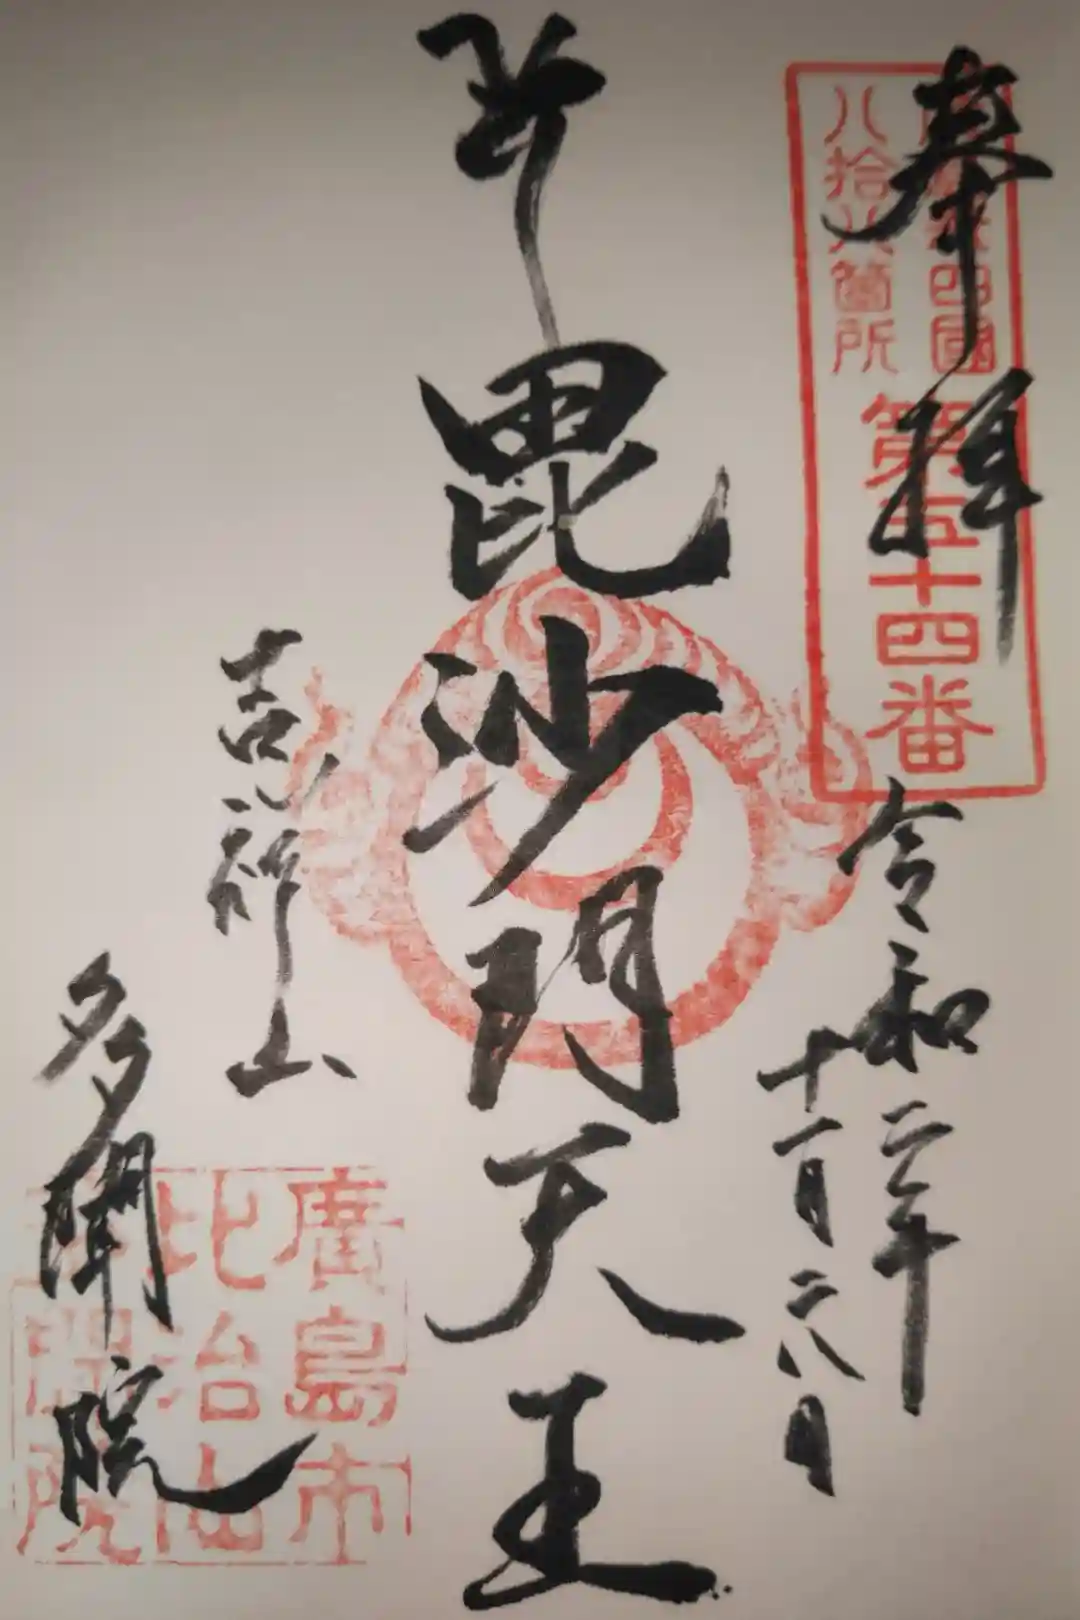 奉拝
八拾八箇所
第五十四番
令和二年
十一月二八日
毘沙門天王
吉祥山
多聞院
廣島市
比治山
多聞院